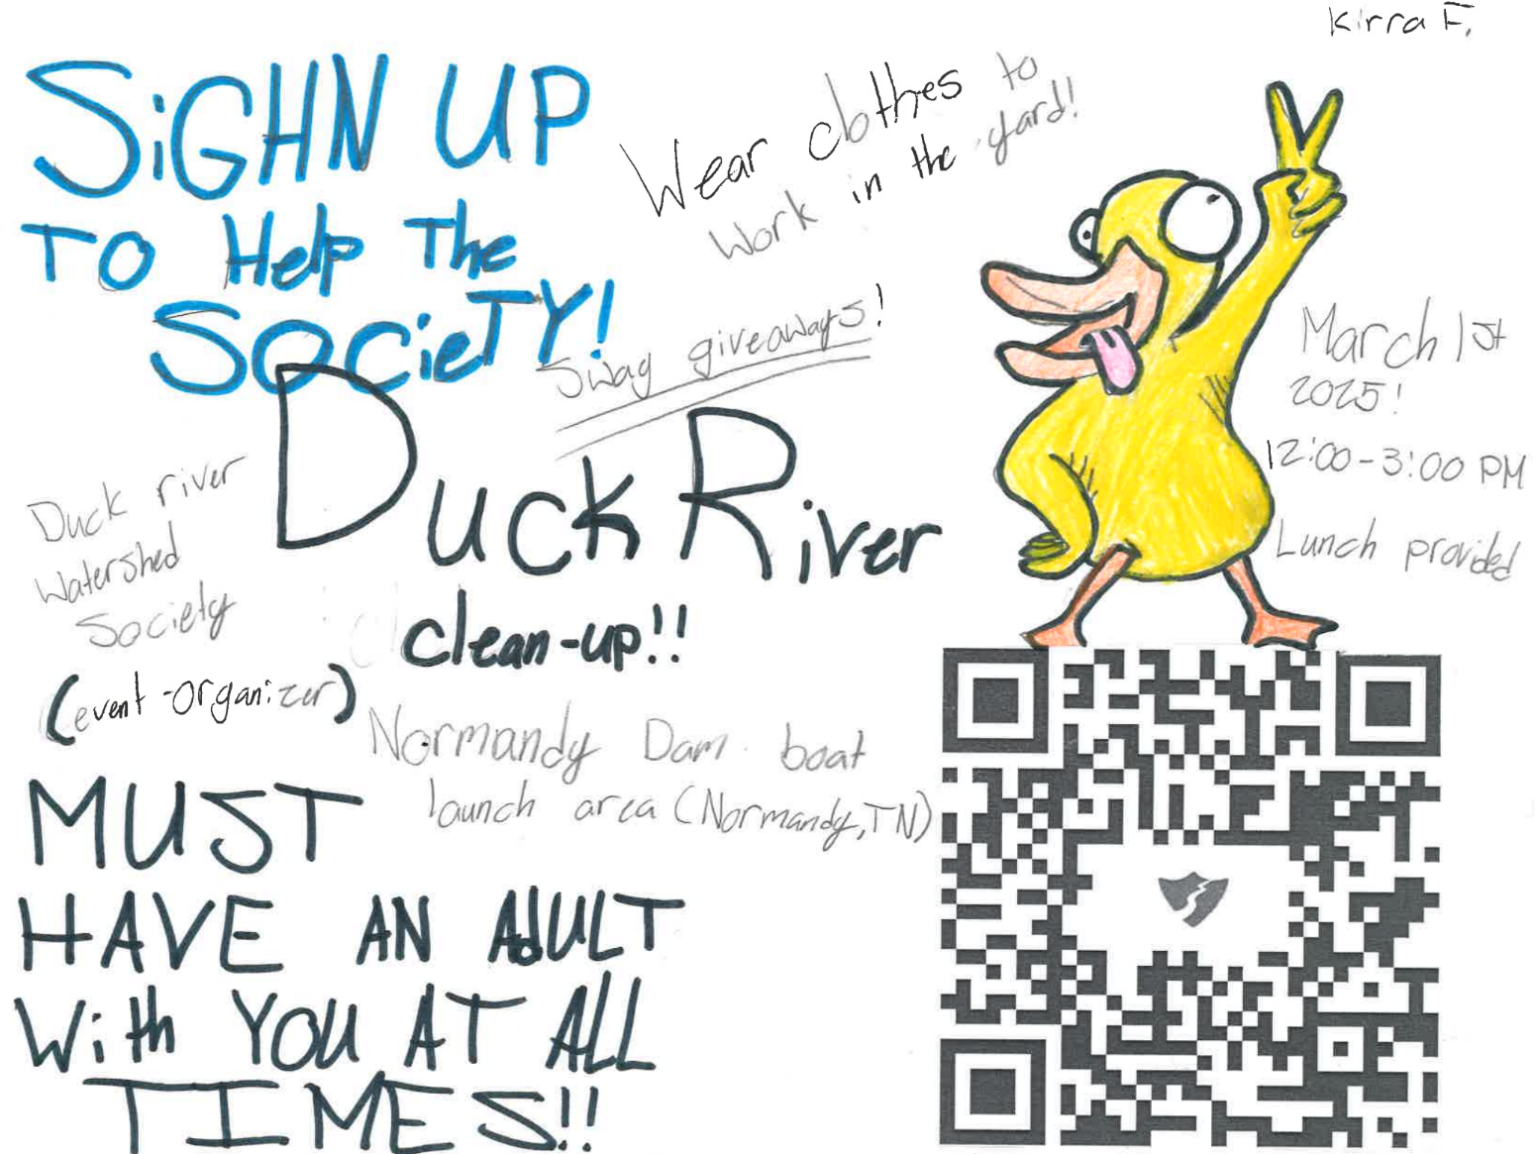 Kirra F.
SiGHN UP
TO Help The
SocieTY!
Wear clothes to
work in the yard!
Swag giveaways!
Duck River
clean-up!!
March 1st
2025!
12:00-3:00 PM
Lunch provided
Duck river
Watershed
Society
(event-organizer)
Normandy Dam boat
launch area (Normandy, TN)
MUST
HAVE AN AdULT
With YOU AT ALL
TIMES!!